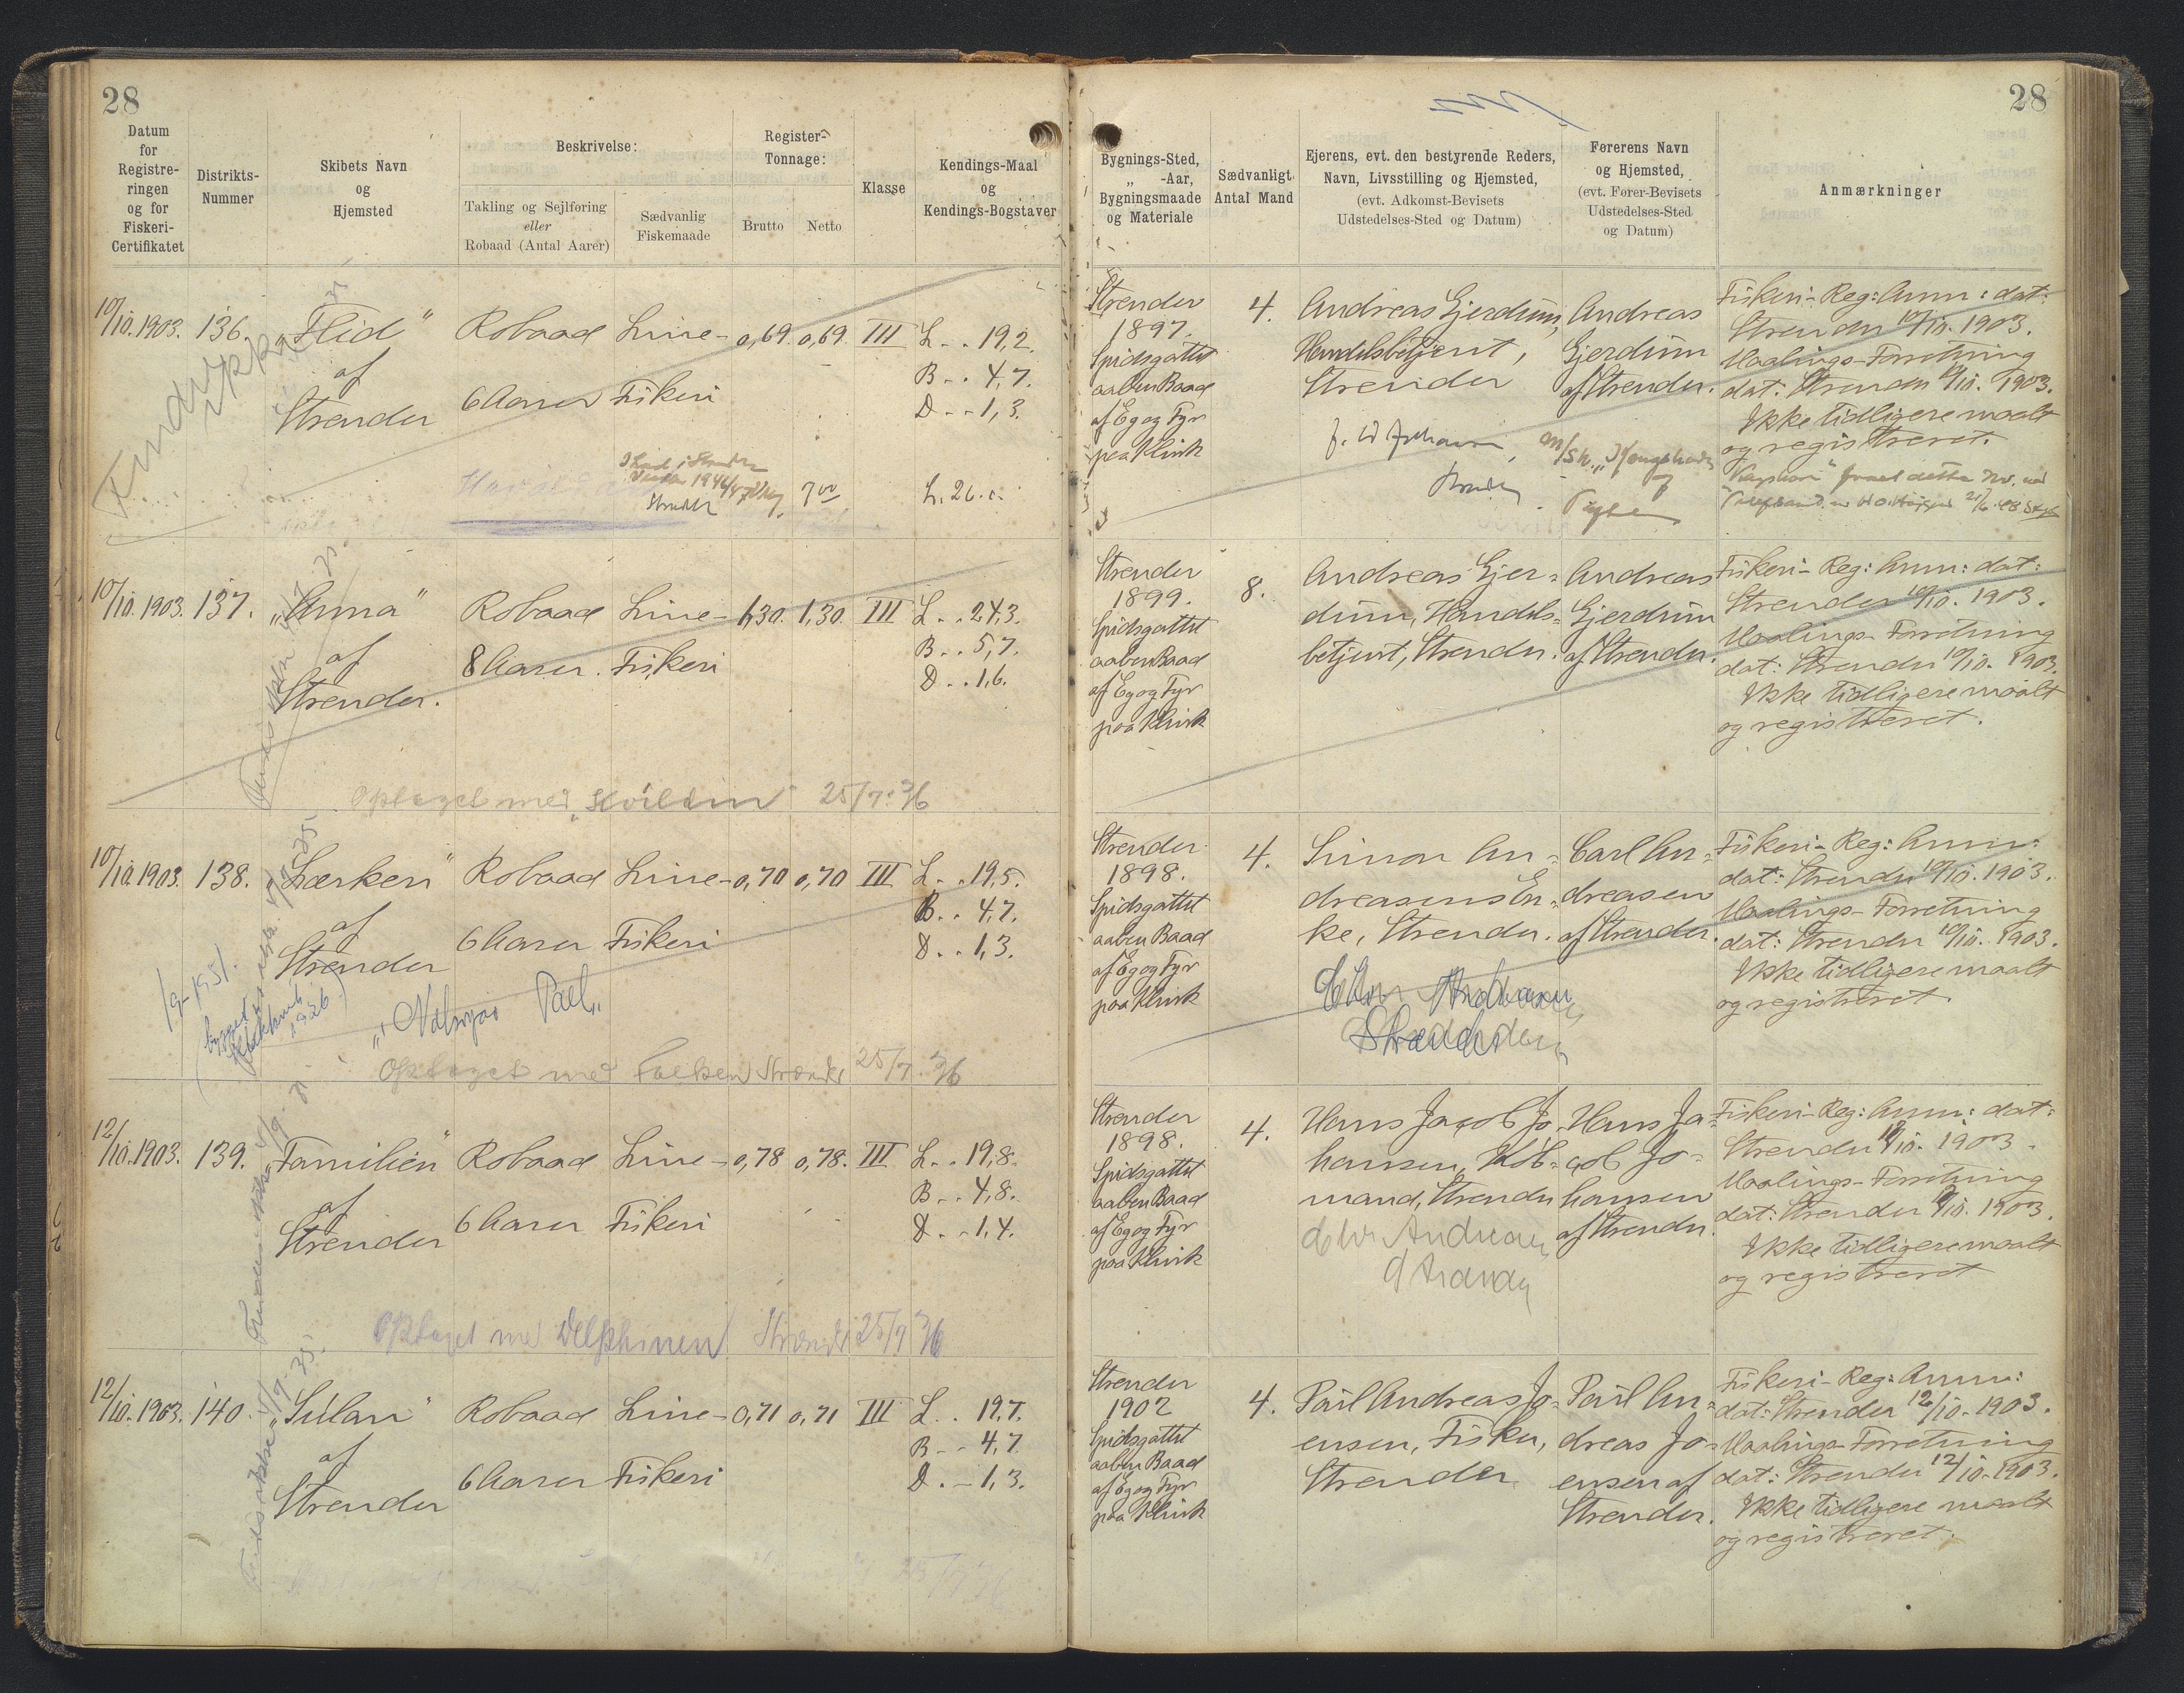 28
Datum
for
Registre-
ringen
og for
Fiskeri-
Certifikatet
Distrikts-
Nummer
Skibets Navn
og
Hjemsted
Beskrivelse:
Takling og Sejlføring
eller
Robaad (Antal Aarer)
Sædvanlig
Fiskemaade
Register-
Tonnage:
Brutto
Netto
Klasse
Kendings-Maal
og
Kendings-Bogstaver
10/10. 1903. 136. „Flid" Robaad Line- 0,69. 0,69. III L. . 19,2.
af B. . 4,7.
Strender 6 Aarer Fiskeri D. . 1,3.
7 00 L. 26.
10/10. 1903. 137. „Anna" Robaad Line- 1,30. 1,30. III L. . 24,3.
af B. . 5,7.
Strender. 8 Aarer. Fiskeri D. . 1,6.
Optaget med 25/7. 36
10/10. 1903. 138. „Lærken" Robaad Line- 0,70 0,70 III L. . 19,5.
af B. . 4,7.
Strender 6 Aarer Fiskeri D. . 1,3.
1/9-1951.
bygget
1926
Optaget med 25/7. 36
12/10. 1903. 139. „Familien" Robaad Line- 0,78 0,78. III L. . 19,8.
af B. . 4,8.
Strender 6 Aarer Fiskeri D. . 1,4.
Optaget med Delphinen 25/7 36
12/10. 1903. 140. „Sulan" Robaad Line- 0,71 0,71 III L. . 19,7.
af B. . 4,7
Strender 6 Aarer Fiskeri D. . 1,3.
28
Bygnings-Sted,
„ -Aar,
Bygningsmaade
og Materiale
Sædvanligt
Antal Mand
Ejerens, evt. den bestyrende Reders,
Navn, Livsstilling og Hjemsted,
(evt. Adkomst-Bevisets
Udstedelses-Sted og Datum)
Førerens Navn
og Hjemsted,
(evt. Fører-Bevisets
Udstedelses-Sted
og Datum)
Anmærkninger
Strender
1897.
Spidsgattet
aaben Baad
af Eg og Fyr
paa Klink
4.
Andreas Gjerdum,
Handelsbetjent,
Strender
Andreas
Gjerdum
af Strender.
Fiskeri-Reg: Anm: dat:
Strender 10/10. 1903.
Maalings-Forretning
dat: Strender 10/10. 1903.
Ikke tidligere maalt
og registreret.
Strender
1899.
Spidsgattet
aaben Baad
af Eg og Fyr
paa Klink
8.
Andreas Gjer-
dum, Handels-
betjent, Strender.
Andreas
Gjerdum
af Strender.
Fiskeri-Reg: Anm: dat:
Strender 10/10. 1903.
Maalings-Forretning
dat: Strender 10/10. 1903.
Ikke tidligere maalt
og registreret.
Strender
1898.
Spidsgattet
aaben Baad
af Eg og Fyr
paa Klink
4.
Simon An-
dreasens En-
ke, Strender.
Carl An-
dreasen
af Strender.
Fiskeri-Reg: Anm:
dat: Strender 10/10. 1903.
Maalings-Forretning
dat: Strender 10/10. 1903.
Ikke tidligere maalt
og registreret.
Strender
1898.
Spidsgattet
aaben Baad
af Eg og Fyr
paa Klink
4.
Hans Jacob Jo-
hansen, Køb-
mand, Strender
Hans Ja-
cob Jo-
hansen
af Strender.
Fiskeri-Reg: Anm: dat:
Strender 12/10. 1903.
Maalings-Forretning
dat: Strender 12/10. 1903.
Ikke tidligere maalt
og registreret
Strender
1902
Spidsgattet
aaben Baad
af Eg og Fyr
paa Klink
4.
Paul Andreas Jo-
ensen, Fisker,
Strender
Paul An-
dreas Jo-
ensen af
Strender.
Fiskeri-Reg: Anm:
dat: Strender 12/10. 1903.
Maalings-Forretning
dat: Strender 12/10. 1903.
Ikke tidligere maalt
og registreret.